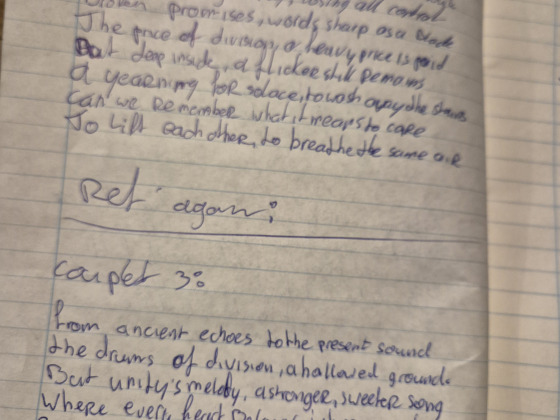 losing all control
Broken promises, words sharp as a blade
The price of division, a heavy price is paid
But deep inside, a flicker still remains
A yearning for solace, to wash away the stains
Can we Remember what it means to care
To lift each other, to breathe the same air
Ref again:
Couplet 3:
From ancient echoes to the present sound
the drums of division, a hallowed ground.
But unity's melody, a stronger, sweeter song
Where every heart